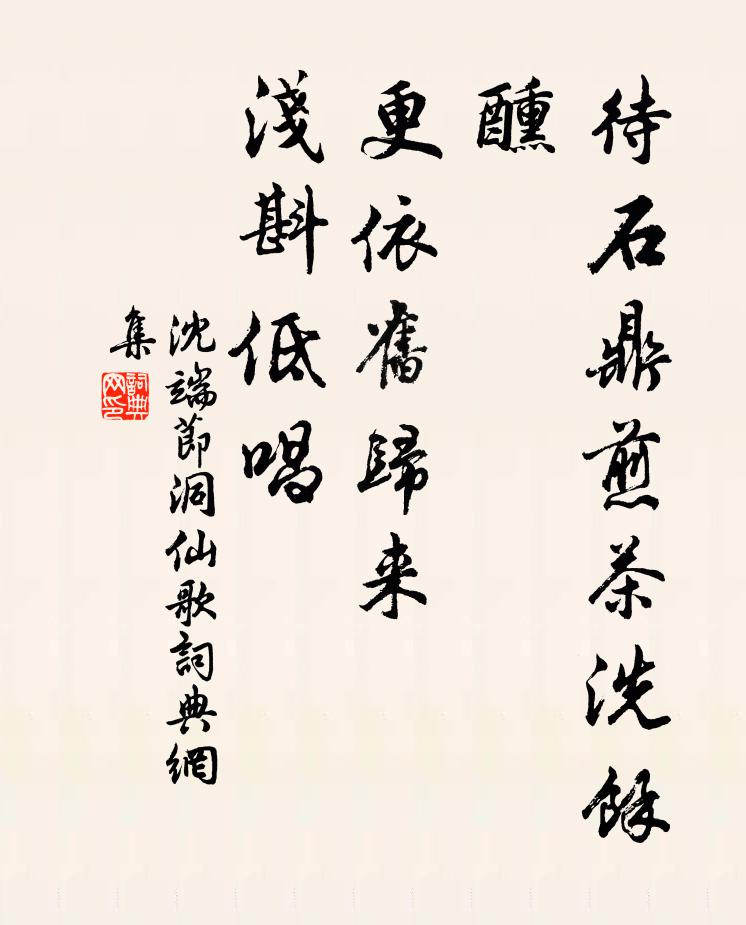 待石鼎煎茶洗餘
醺
更依舊歸来
淺斟低唱
沈端節洞仙歌詞典網
集
詞典
网印